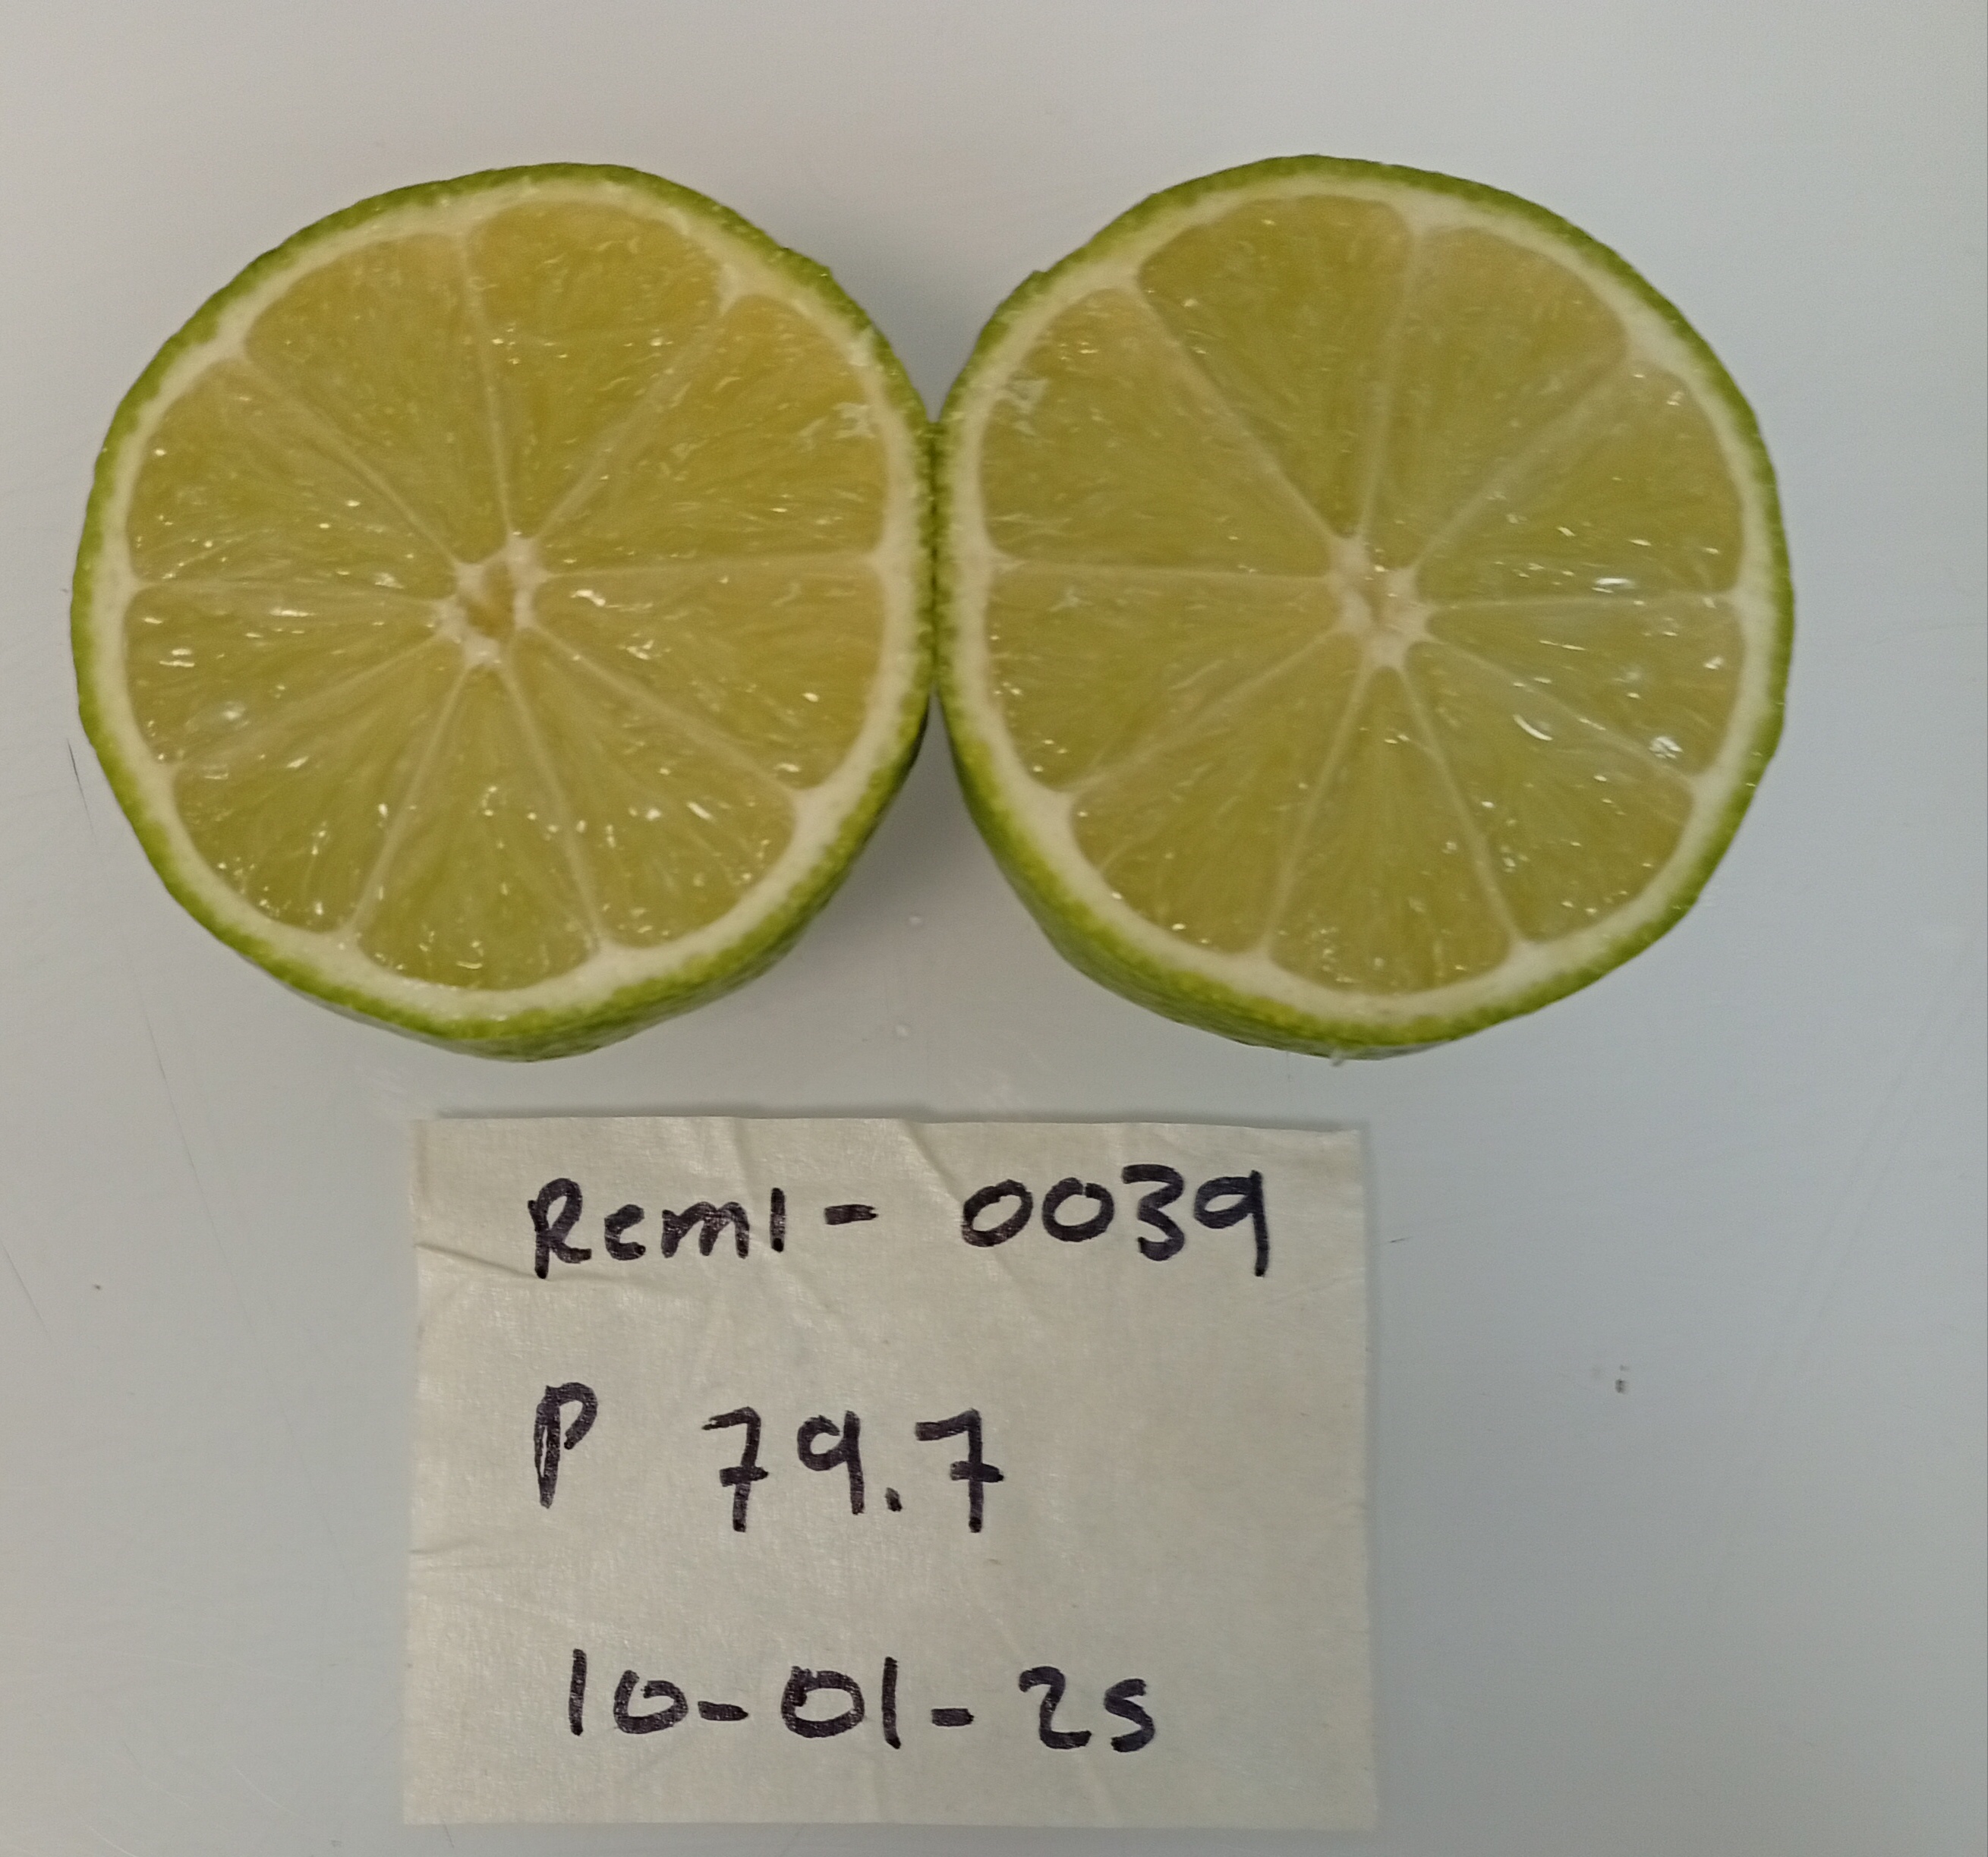 Rcml- 0039
P 79.7
10-01-25